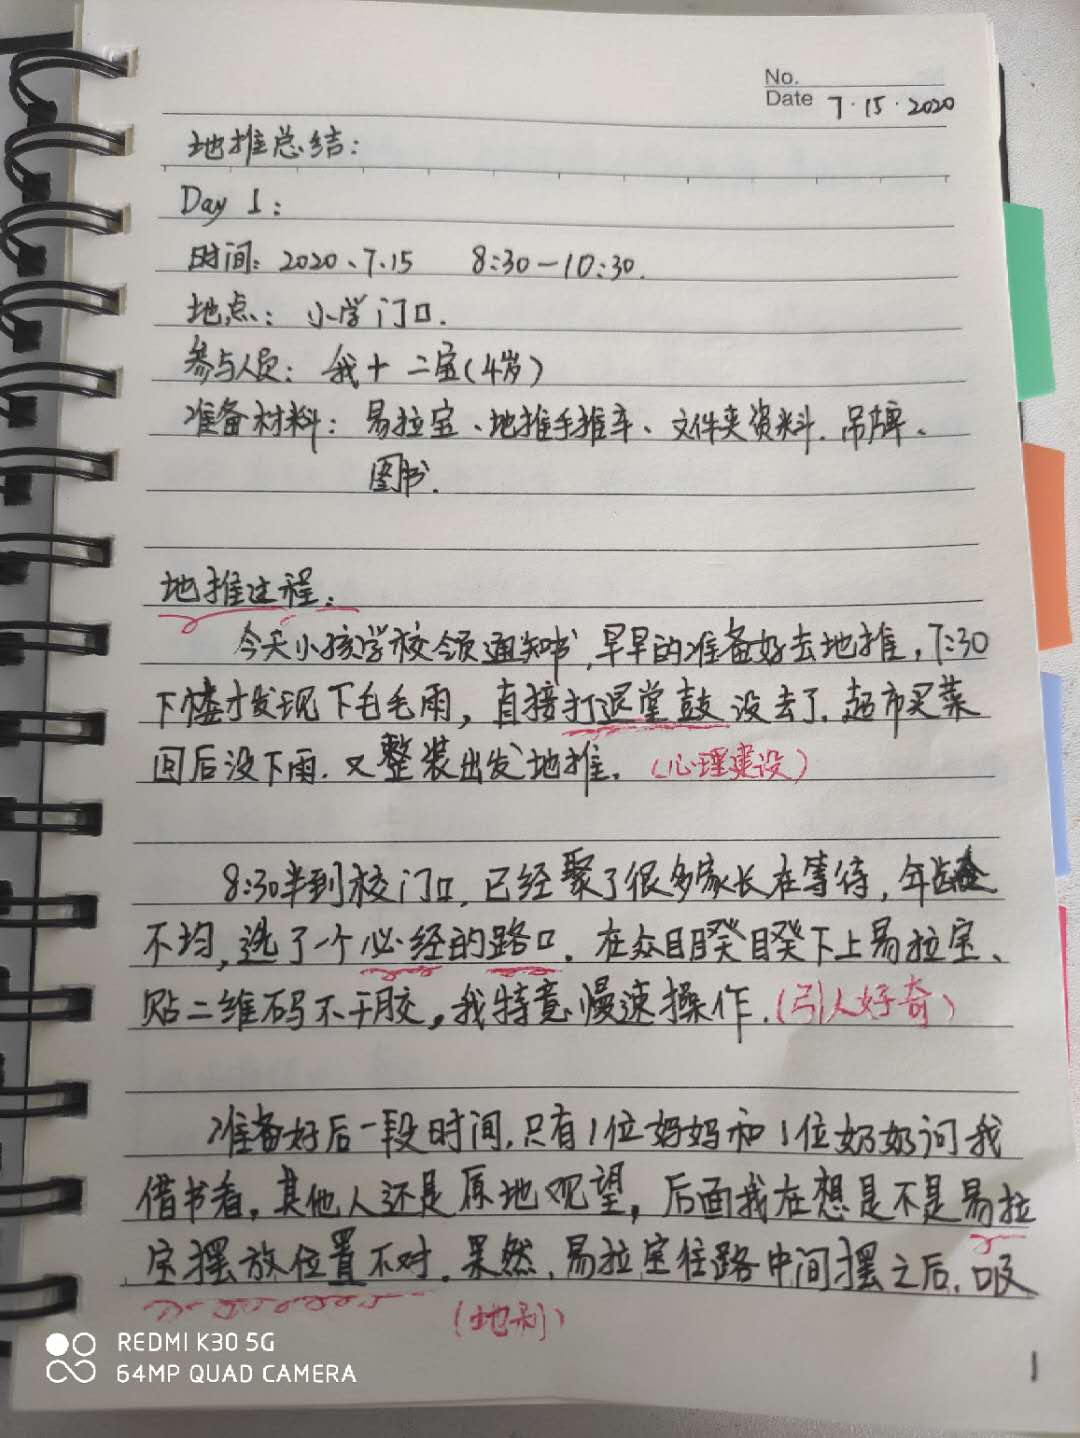 No.
Date 7·15·2020
地推总结：
Day 1：
时间：2020、7.15 8:30—10:30.
地点：小学门口.
参与人员：我+二宝(4岁)
准备材料：易拉宝、地推手推车、文件夹资料、吊牌、
图书.
地推过程：
今天小孩学校领通知书,早早的准备好去地推，7:30
下楼才发现下毛毛雨，直接打退堂鼓没去了.超市买菜
回后没下雨.又整装出发地推.（心理建设）
8:30半到校门口,已经聚了很多家长在等待,年龄
不均,选了一个必经的路口.在众目睽睽下上易拉宝、
贴二维码不干胶，我特意慢速操作.（引人好奇）
准备好后一段时间,只有1位妈妈和1位奶奶问我
借书看,其他人还是原地观望，后面我在想是不是易拉
宝摆放位置不对.果然,易拉宝往路中间摆之后.吸
（地利）
1
REDMI K30 5G
64MP QUAD CAMERA